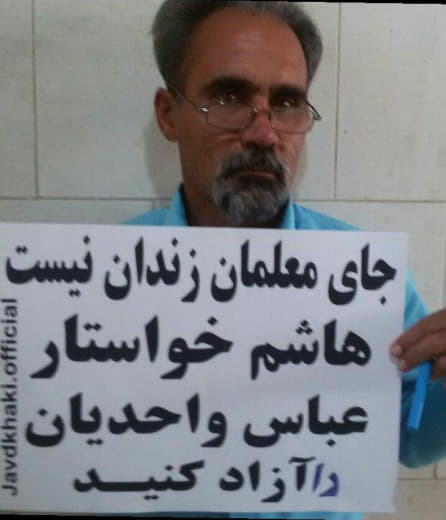 جای معلمان زندان نیست
هاشم خواستار
عباس واحدیان
راآزاد کنید
Javdkhaki.official